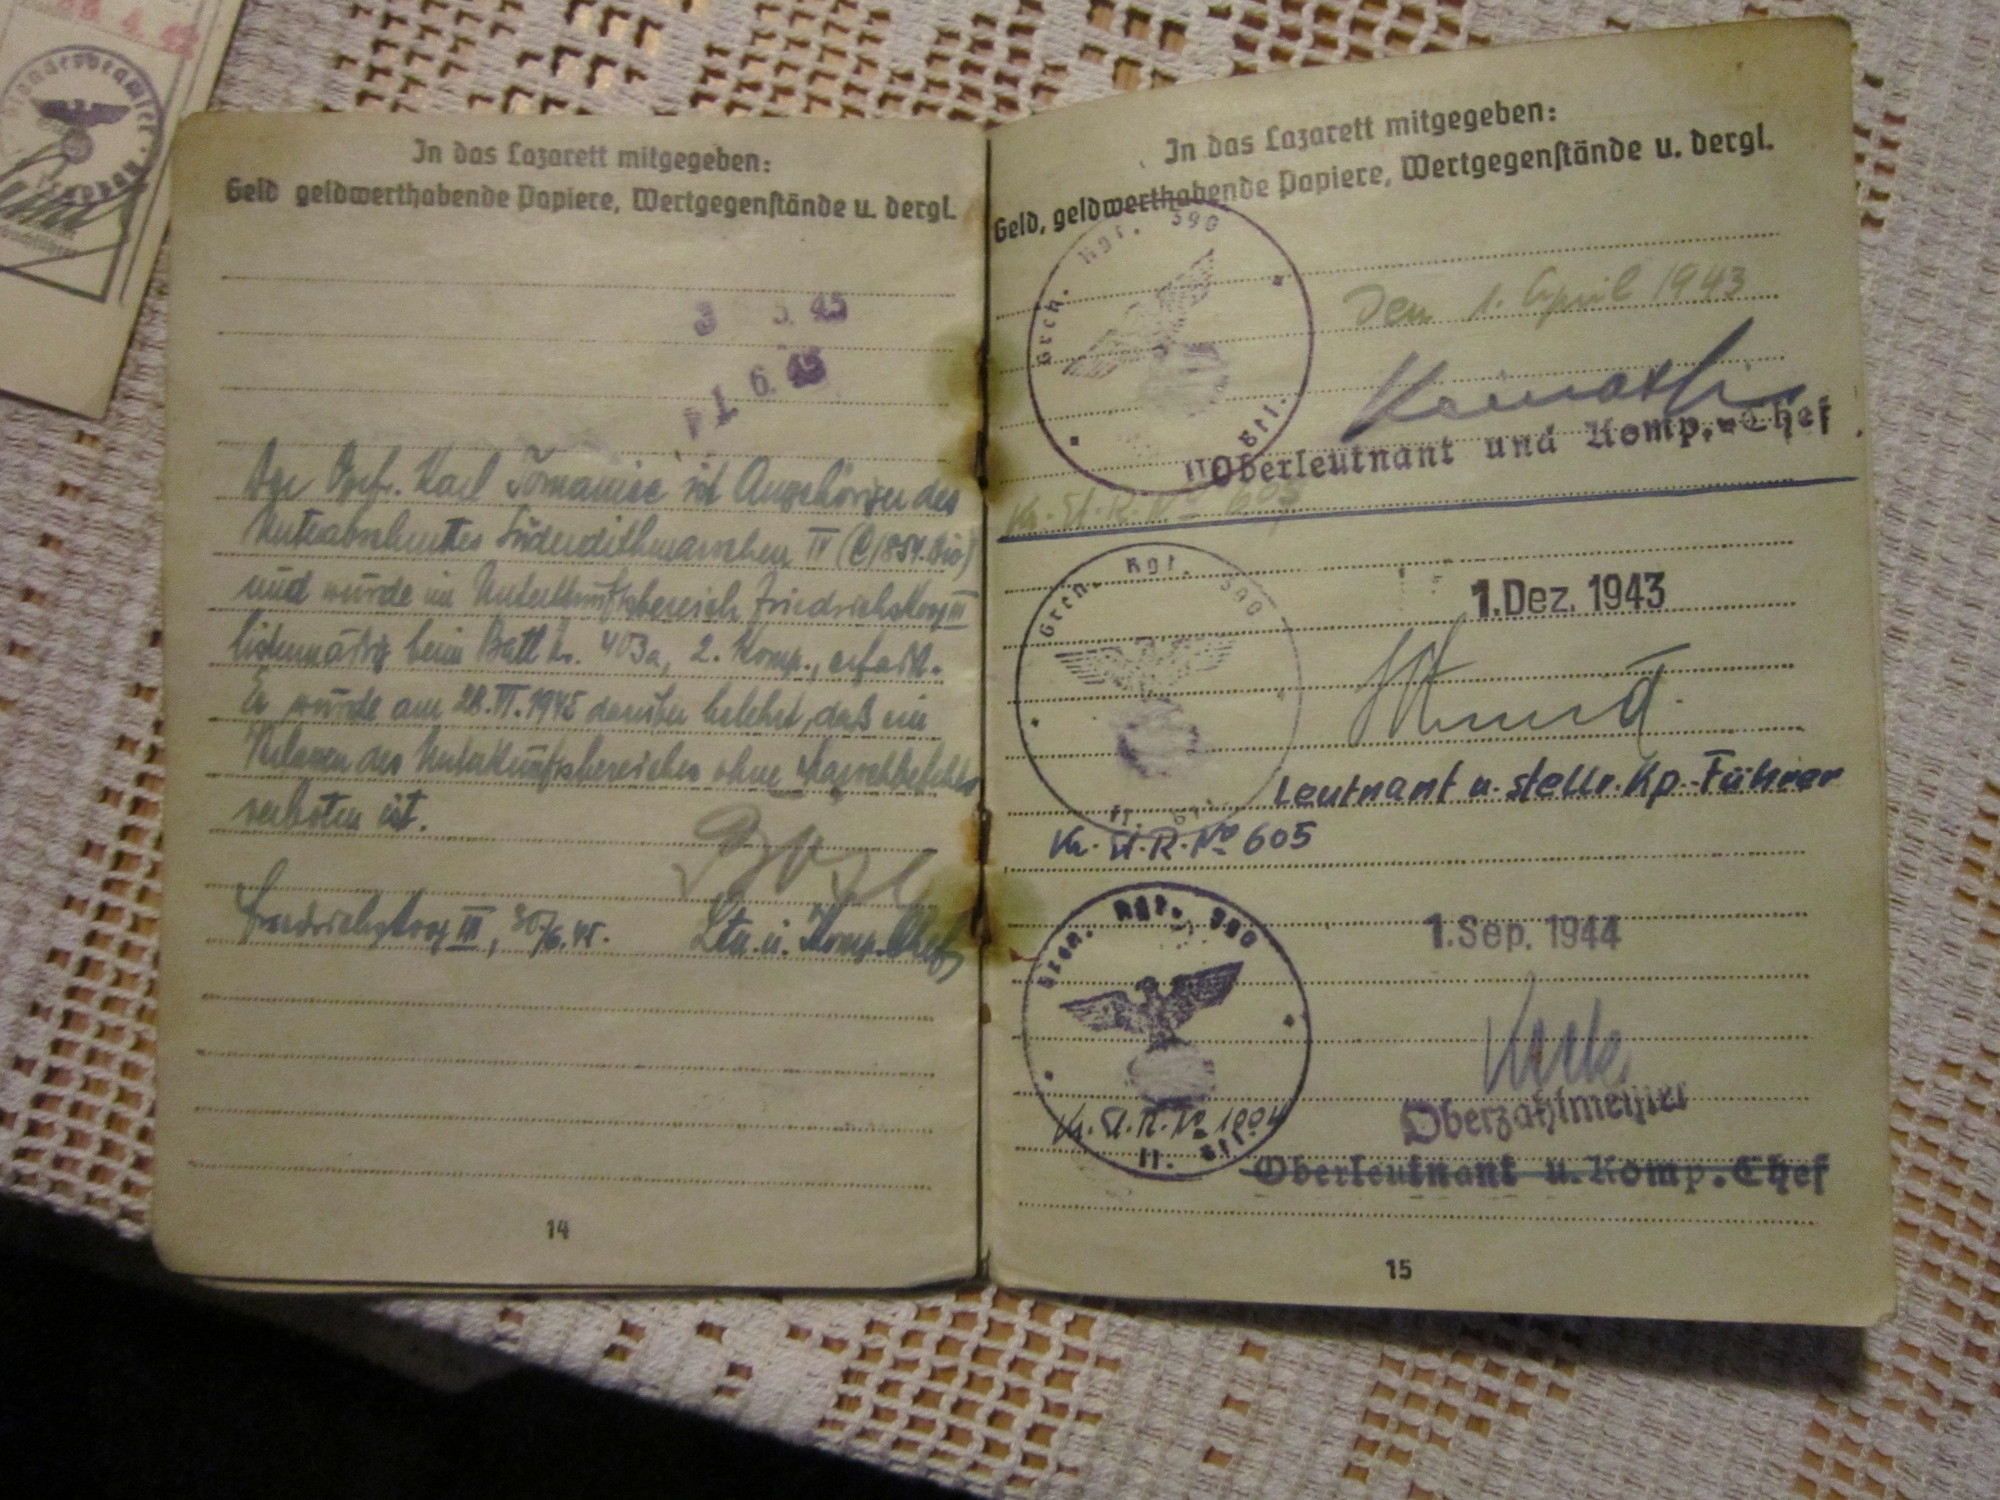 In das Lazarett mitgegeben:
Geld geldwerthabende Papiere, Wertgegenstände u. dergl.
3 5. 45
1 6. 45
Der Ogefr. Karl Tomaniec ist Angehöriger des
Unterabschnittes Süderdithmarschen IV (C/854.Div)
und wurde im Unterkunftsbereich Friedrichskoog III
listenmäßig beim Batl. Nr. 403a, 2. Komp., erfaßt.
Er wurde am 28.VI.1945 darüber belehrt, daß ein
Verlassen des Unterkunftsbereiches ohne Marschbefehls
verboten ist.
Friedrichskoog III, 30/6.45.
Ltn. u. Komp.Chef
14
In das Lazarett mitgegeben:
Geld, geldwerthabende Papiere, Wertgegenstände u. dergl.
Gren. Rgt. 390
II. Btl.
Den 1. April 1943
Oberleutnant und Komp.-Chef
Kr. St. R. No 605
Gren. Rgt. 390
1. Dez. 1943
Leutnant u. stellr. Kp.-Führer
Kr. St. R. No 605
Gren. Rgt. 390
II. Btl.
1. Sep. 1944
Kr. St. R. No 1004
Oberzahlmeister
Oberleutnant u. Komp. Chef
15